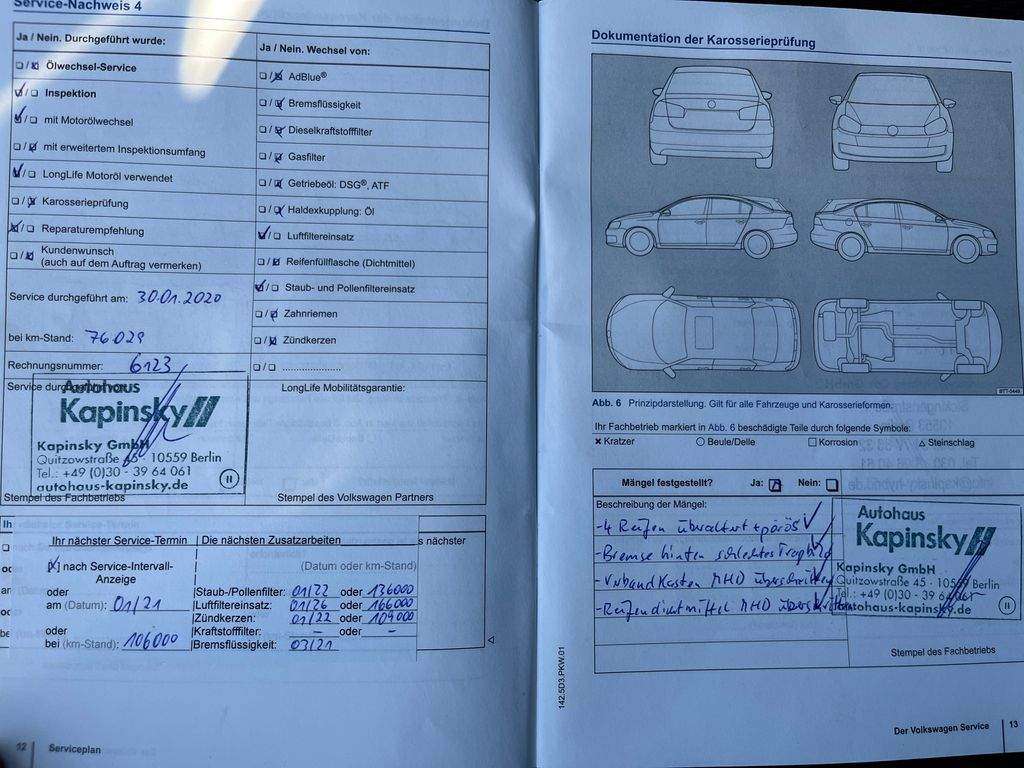 Service-Nachweis 4
Ja / Nein. Durchgeführt wurde:
Ölwechsel-Service
Inspektion
mit Motorölwechsel
mit erweitertem Inspektionsumfang
LongLife Motoröl verwendet
Karosserieprüfung
Reparaturempfehlung
Kundenwunsch
(auch auf dem Auftrag vermerken)
Service durchgeführt am: 30.01.2020
bei km-Stand: 76.029
Rechnungsnummer: 6123
Service
Autohaus
Kapinsky
Kapinsky GmbH
Quitzowstraße 45 - 10559 Berlin
Tel.: +49 (0)30 - 39 64 061
autohaus-kapinsky.de
Stempel des Fachbetriebs
Ja / Nein. Wechsel von:
AdBlue®
Bremsflüssigkeit
Dieselkraftstofffilter
Gasfilter
Getriebeöl: DSG®, ATF
Haldexkupplung: Öl
Luftfiltereinsatz
Reifenfüllflasche (Dichtmittel)
Staub- und Pollenfiltereinsatz
Zahnriemen
Zündkerzen
.....................
LongLife Mobilitätsgarantie:
Stempel des Volkswagen Partners
Ihr nächster Service-Termin
nach Service-Intervall-
Anzeige
oder
am (Datum): 01/21
oder
bei (km-Stand): 106000
Die nächsten Zusatzarbeiten
(Datum oder km-Stand)
Staub-/Pollenfilter: 01/22 oder 136000
Luftfiltereinsatz: 01/26 oder 166000
Zündkerzen: 01/22 oder 109000
Kraftstofffilter: – oder –
Bremsflüssigkeit: 03/21
s nächster
12 Serviceplan
Dokumentation der Karosserieprüfung
BTT-0449
Abb. 6 Prinzipdarstellung. Gilt für alle Fahrzeuge und Karosserieformen.
Ihr Fachbetrieb markiert in Abb. 6 beschädigte Teile durch folgende Symbole:
× Kratzer ○ Beule/Delle □ Korrosion △ Steinschlag
Mängel festgestellt? Ja: Nein:
Beschreibung der Mängel:
- 4 Reifen überaltert + porös
- Bremse hinten schlechtes Tragbild
- Verbandkasten MHD überschritten
- Reifendichtmittel MHD überschritten
Autohaus
Kapinsky
Kapinsky GmbH
Quitzowstraße 45 - 10559 Berlin
Tel.: +49 (0)30 - 39 64 061
autohaus-kapinsky.de
Stempel des Fachbetriebs
142.5D3.PKW.01
Der Volkswagen Service 13